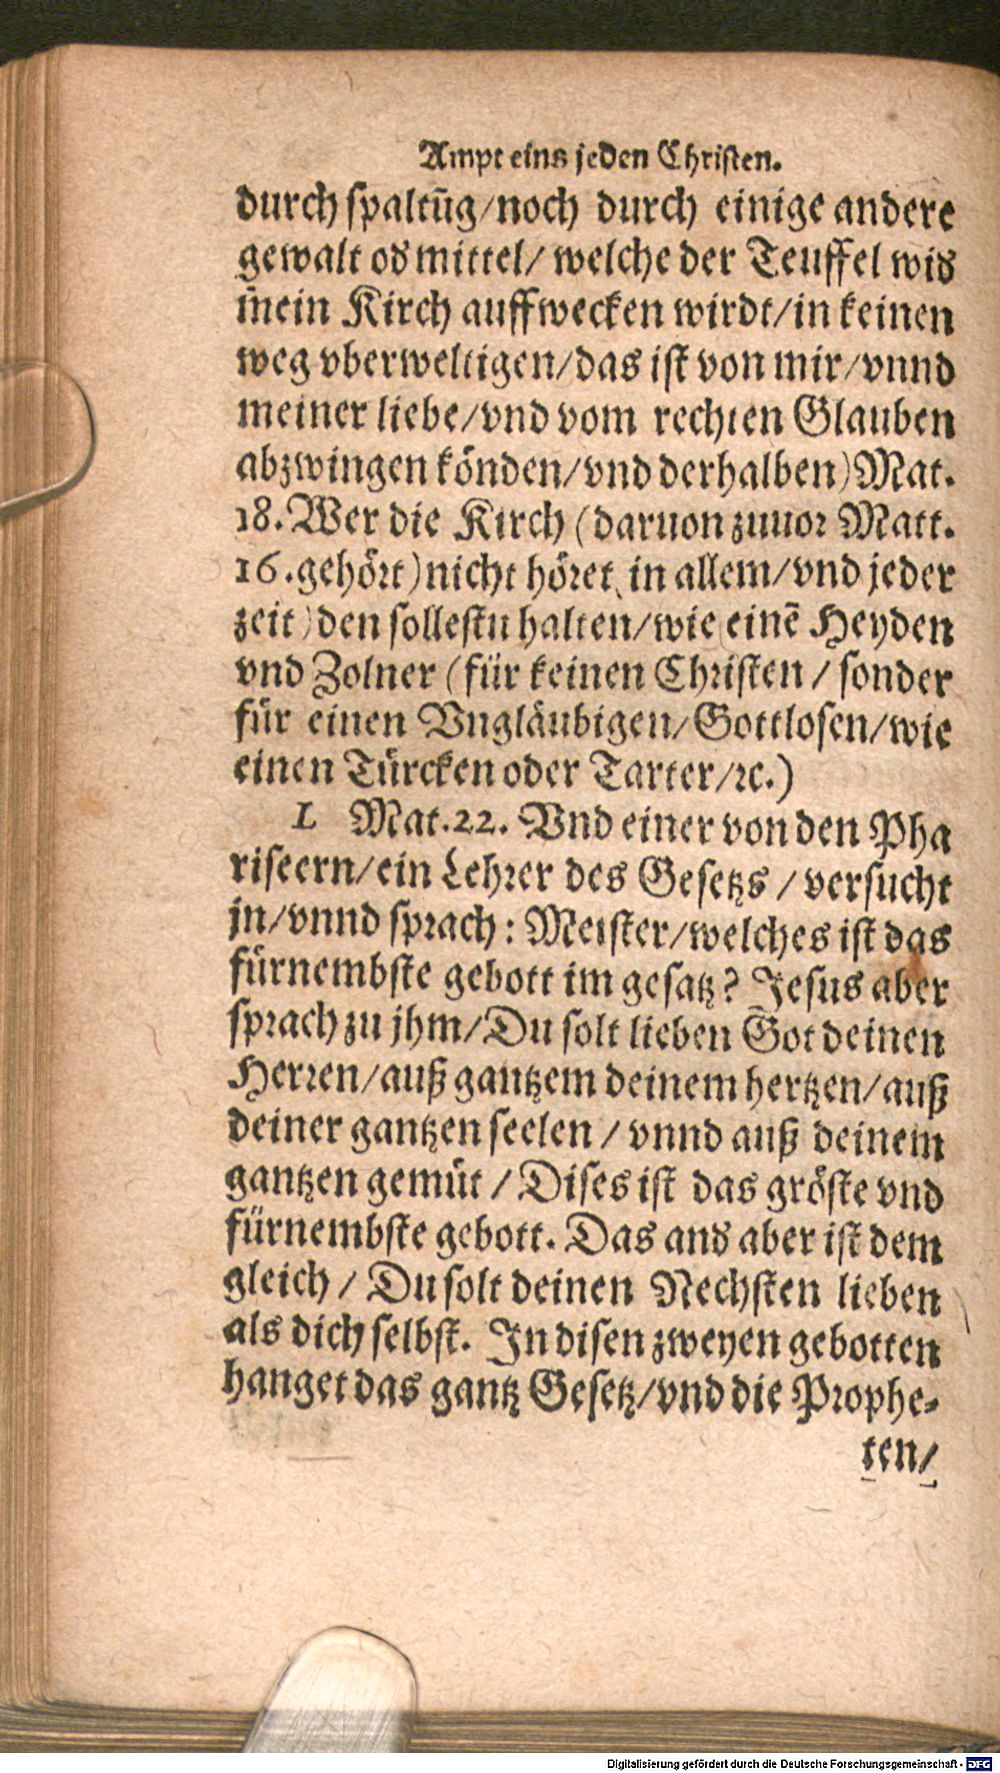 Ampt eins jeden Christen.
durch spaltũg/noch durch einige andere
gewalt oď mittel/ welche der Teuffel wiď
m̃ein Kirch auffwecken wirdt/in keinen
weg vberweltigen/das ist von mir/vnnd
meiner liebe/vnd vom rechten Glauben
abzwingen könden/vnd derhalben) Mat.
18. Wer die Kirch (daruon zuuor Matt.
16. gehört) nicht höret (in allem/vnd jeder
zeit) den sollestu halten/wie einẽ Heyden
vnd Zolner (für keinen Christen / sonder
für einen Vngläubigen/Gottlosen/wie
einen Türcken oder Tarter/ꝛc.)
1 Mat.22. Vnd einer von den Pha
riseern/ein Lehrer des Gesetzs / versucht
jn/vnnd sprach: Meister/welches ist das
fürnembste gebott im gesatz? Jesus aber
sprach zu jhm/Du solt lieben Got deinen
Herren/auß gantzem deinem hertzen/auß
deiner gantzen seelen / vnnd auß deinem
gantzen gemüt / Dises ist das gröste vnd
fürnembste gebott. Das anď aber ist dem
gleich / Du solt deinen Nechsten lieben
als dich selbst. In disen zweyen gebotten
hanget das gantz Gesetz/vnd die Prophe-
ten/
Digitalisierung gefördert durch die Deutsche Forschungsgemeinschaft - DFG